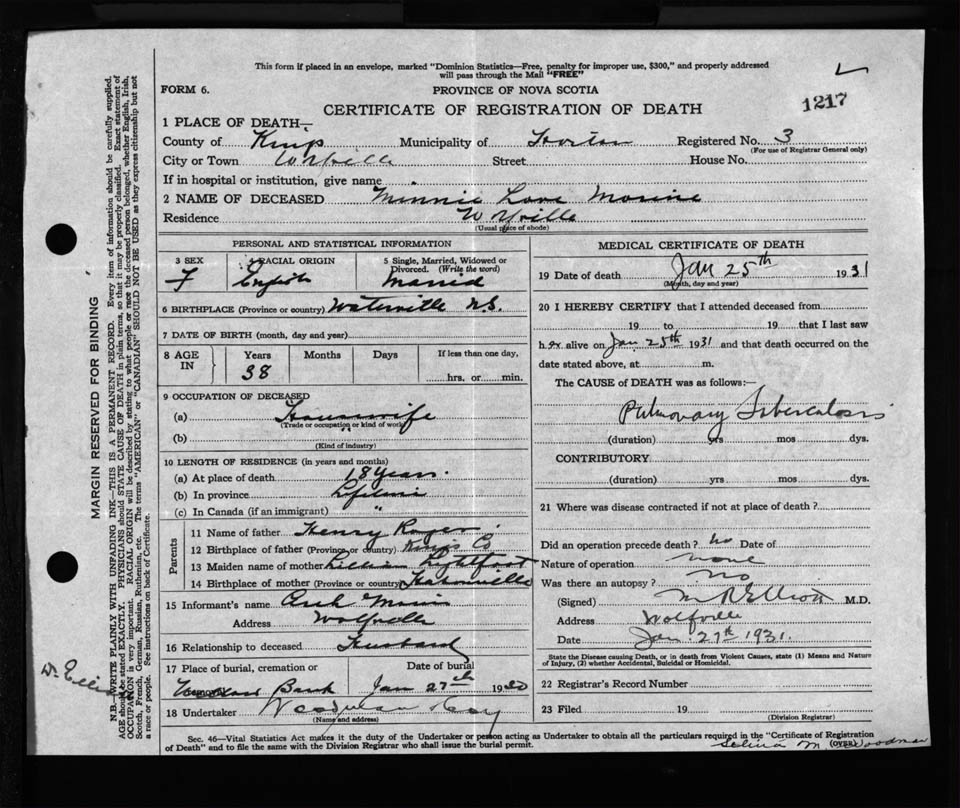 This form if placed in an envelope, marked "Dominion Statistics—Free, penalty for improper use, $300," and properly addressed
will pass through the Mail "FREE"
FORM 6.
PROVINCE OF NOVA SCOTIA
1217
CERTIFICATE OF REGISTRATION OF DEATH
1 PLACE OF DEATH—
County of Kings Municipality of Horton Registered No. 3
(For use of Registrar General only)
City or Town Wolfville Street House No.
If in hospital or institution, give name
2 NAME OF DECEASED Minnie Love
Residence Wolfville
(Usual place of abode)
PERSONAL AND STATISTICAL INFORMATION
3 SEX F
4 RACIAL ORIGIN English
5 Single, Married, Widowed or Divorced. (Write the word) Married
6 BIRTHPLACE (Province or country) Waterville N.S.
7 DATE OF BIRTH (month, day and year)
8 AGE IN Years Months Days If less than one day,
38 hrs. or min.
9 OCCUPATION OF DECEASED
(a) Housewife
(Trade or occupation or kind of work)
(b) "
(Kind of industry)
10 LENGTH OF RESIDENCE (in years and months)
(a) At place of death 18 Years.
(b) In province Lifetime
(c) In Canada (if an immigrant) "
Parents
11 Name of father Henry Roger
12 Birthplace of father (Province or country) Kings Co
13 Maiden name of mother Lillian Lightfoot
14 Birthplace of mother (Province or country)
15 Informant's name
Address Wolfville
16 Relationship to deceased Husband
17 Place of burial, cremation or Date of burial
Bank Jan 27th 1930
18 Undertaker Woodman
(Name and address)
MEDICAL CERTIFICATE OF DEATH
19 Date of death Jan 25th 1931
(Month, day and year)
20 I HEREBY CERTIFY that I attended deceased from
19 to 19 that I last saw
her alive on Jan 25th 1931 and that death occurred on the
date stated above, at m.
The CAUSE OF DEATH was as follows:—
Pulmonary Tuberculosis
(duration) yrs mos dys.
CONTRIBUTORY
(duration) yrs mos dys.
21 Where was disease contracted if not at place of death?
Did an operation precede death? No Date of
Nature of operation none
Was there an autopsy? No
(Signed) M R Elliott M.D.
Address Wolfville
Date Jan 27th 1931.
State the Disease causing Death, or in death from Violent Causes, state (1) Means and Nature
of Injury, (2) whether Accidental, Suicidal or Homicidal.
22 Registrar's Record Number
23 Filed 19
(Division Registrar)
Sec. 46—Vital Statistics Act makes it the duty of the Undertaker or person acting as Undertaker to obtain all the particulars required in the "Certificate of Registration
of Death" and to file the same with the Division Registrar who shall issue the burial permit.
(OVER)
Selina M. Woodman
MARGIN RESERVED FOR BINDING
N.B.—WRITE PLAINLY WITH UNFADING INK—THIS IS A PERMANENT RECORD. Every item of information should be carefully supplied.
AGE should be stated EXACTLY. PHYSICIANS should STATE CAUSE OF DEATH in plain terms, so that it may be properly classified. Exact statement of
OCCUPATION is very important. RACIAL ORIGIN will be described by stating to what people or race the deceased person belonged, whether English, Irish,
Scotch, French, German, Russian, Ruthenian, etc. The terms "AMERICAN" or "CANADIAN" SHOULD NOT BE USED as they express citizenship but not
a race or people. See instructions on back of Certificate.